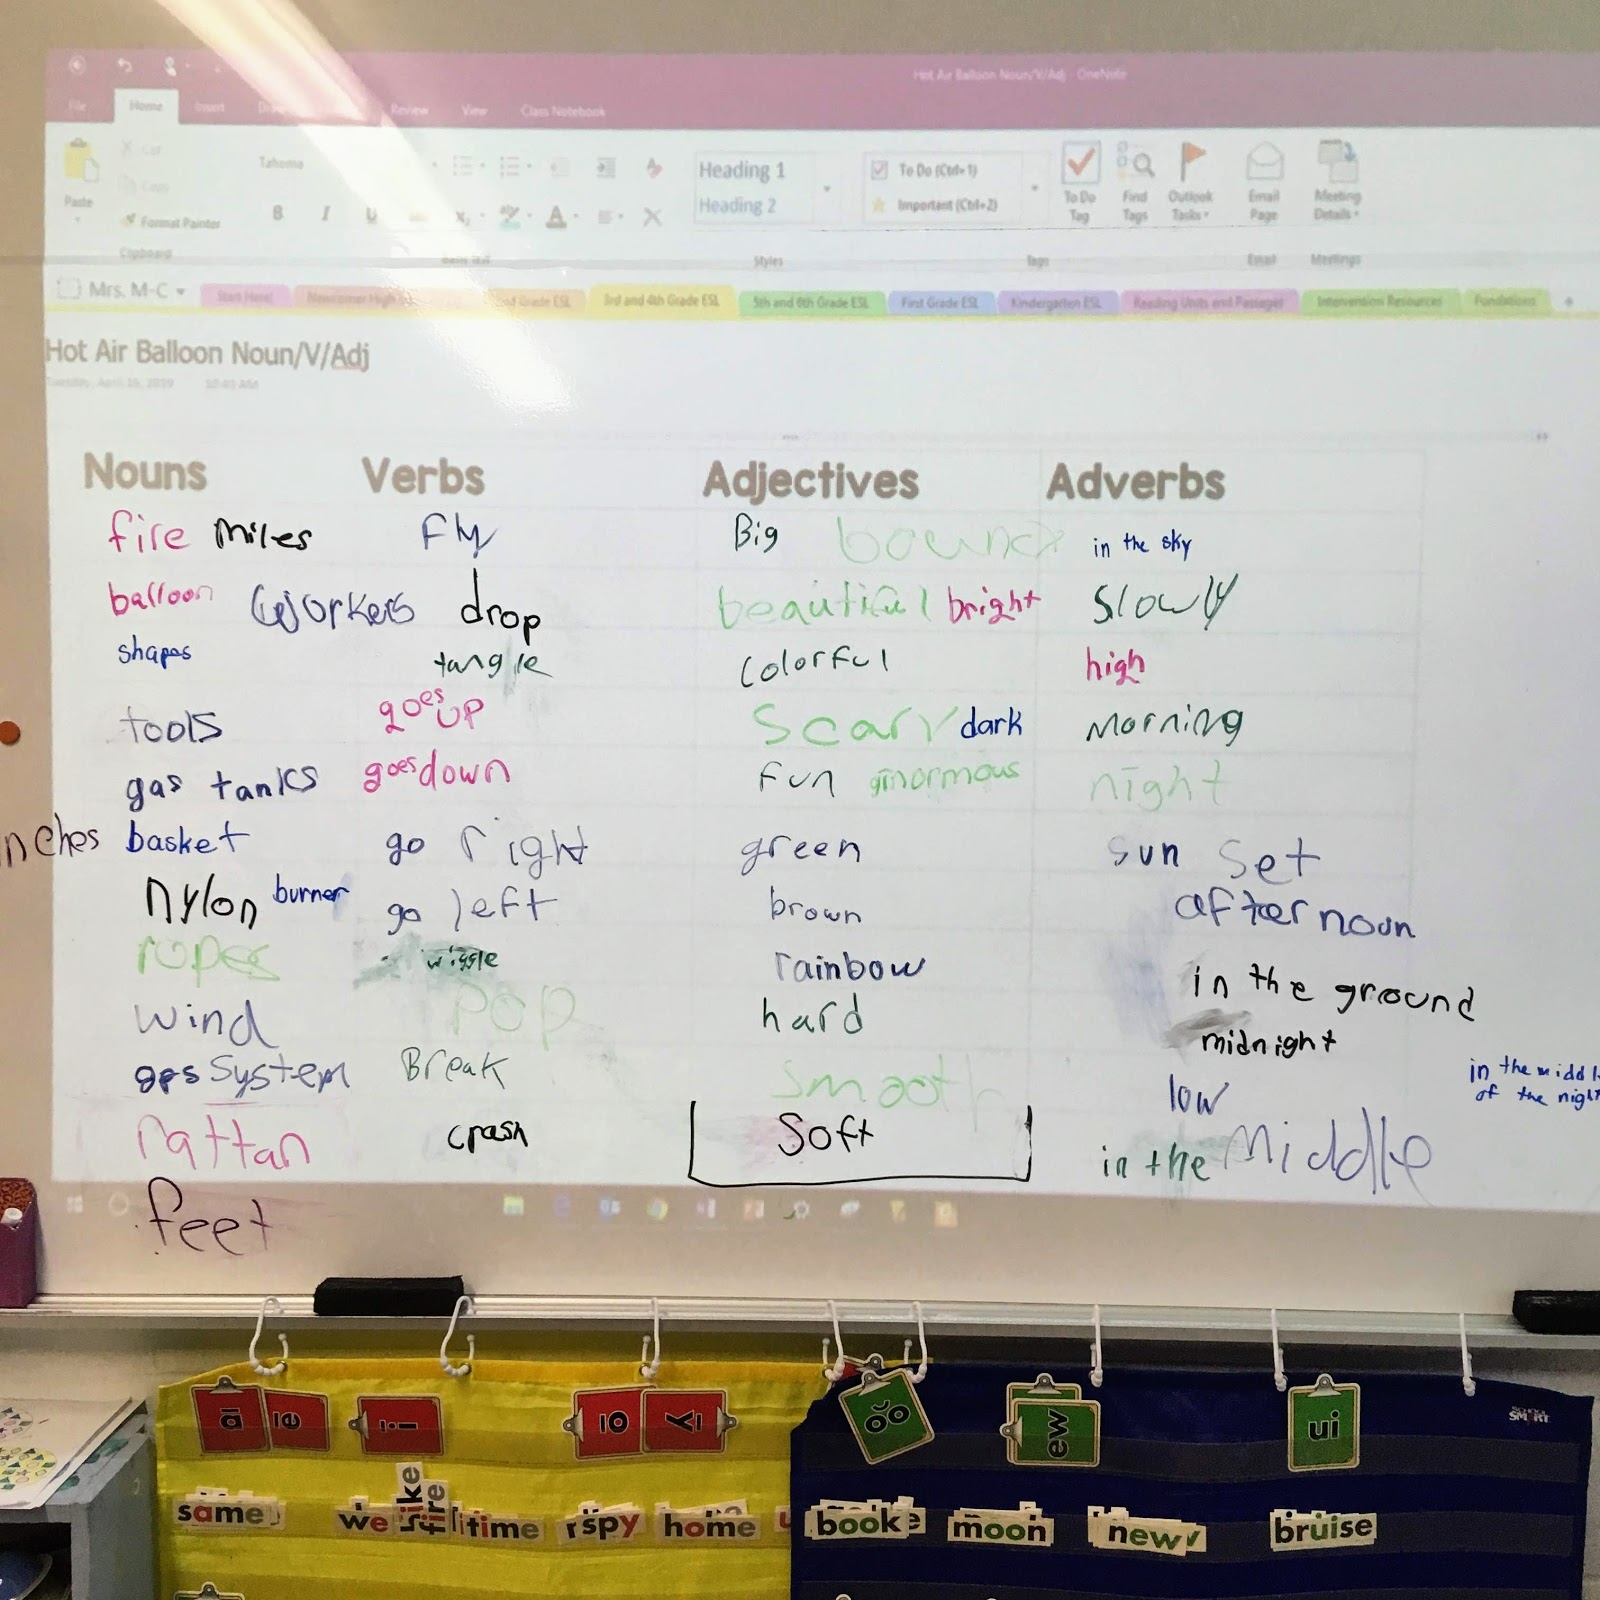 Hot Air Balloon Noun/V/Adj - OneNote
File Home Insert Review View Class Notebook
Cut
Copy
Paste
Format Painter
Clipboard
Tahoma
B I U
Heading 1
Heading 2
Styles
To Do (Ctrl+1)
Important (Ctrl+2)
Tags
To Do Tag
Find Tags
Outlook Tasks
Email Page
Email
Meeting Details
Meetings
Mrs. M-C
Start Here! Newcomer High 2nd Grade ESL 3rd and 4th Grade ESL 5th and 6th Grade ESL First Grade ESL Kindergarten ESL Reading Units and Passages Intervention Resources Fundations
Hot Air Balloon Noun/V/Adj
Tuesday, April 16, 2019 10:40 AM
Nouns Verbs Adjectives Adverbs
fire miles Fly Big in the sky
balloon workers drop beautiful bright slowly
shapes tangle colorful high
tools goes up scary dark morning
gas tanks goes down fun ginormous night
nches basket go right green sun set
nylon burner go left brown afternoun
ropes wiggle rainbow in the ground
wind pop hard midnight
gps system Break smooth low in the middl
of the night
rattan crash Soft in the Middle
feet
a_e i o y oo ew ui
SCHOOL SMART
same we hike fire time spy home book moon new bruise